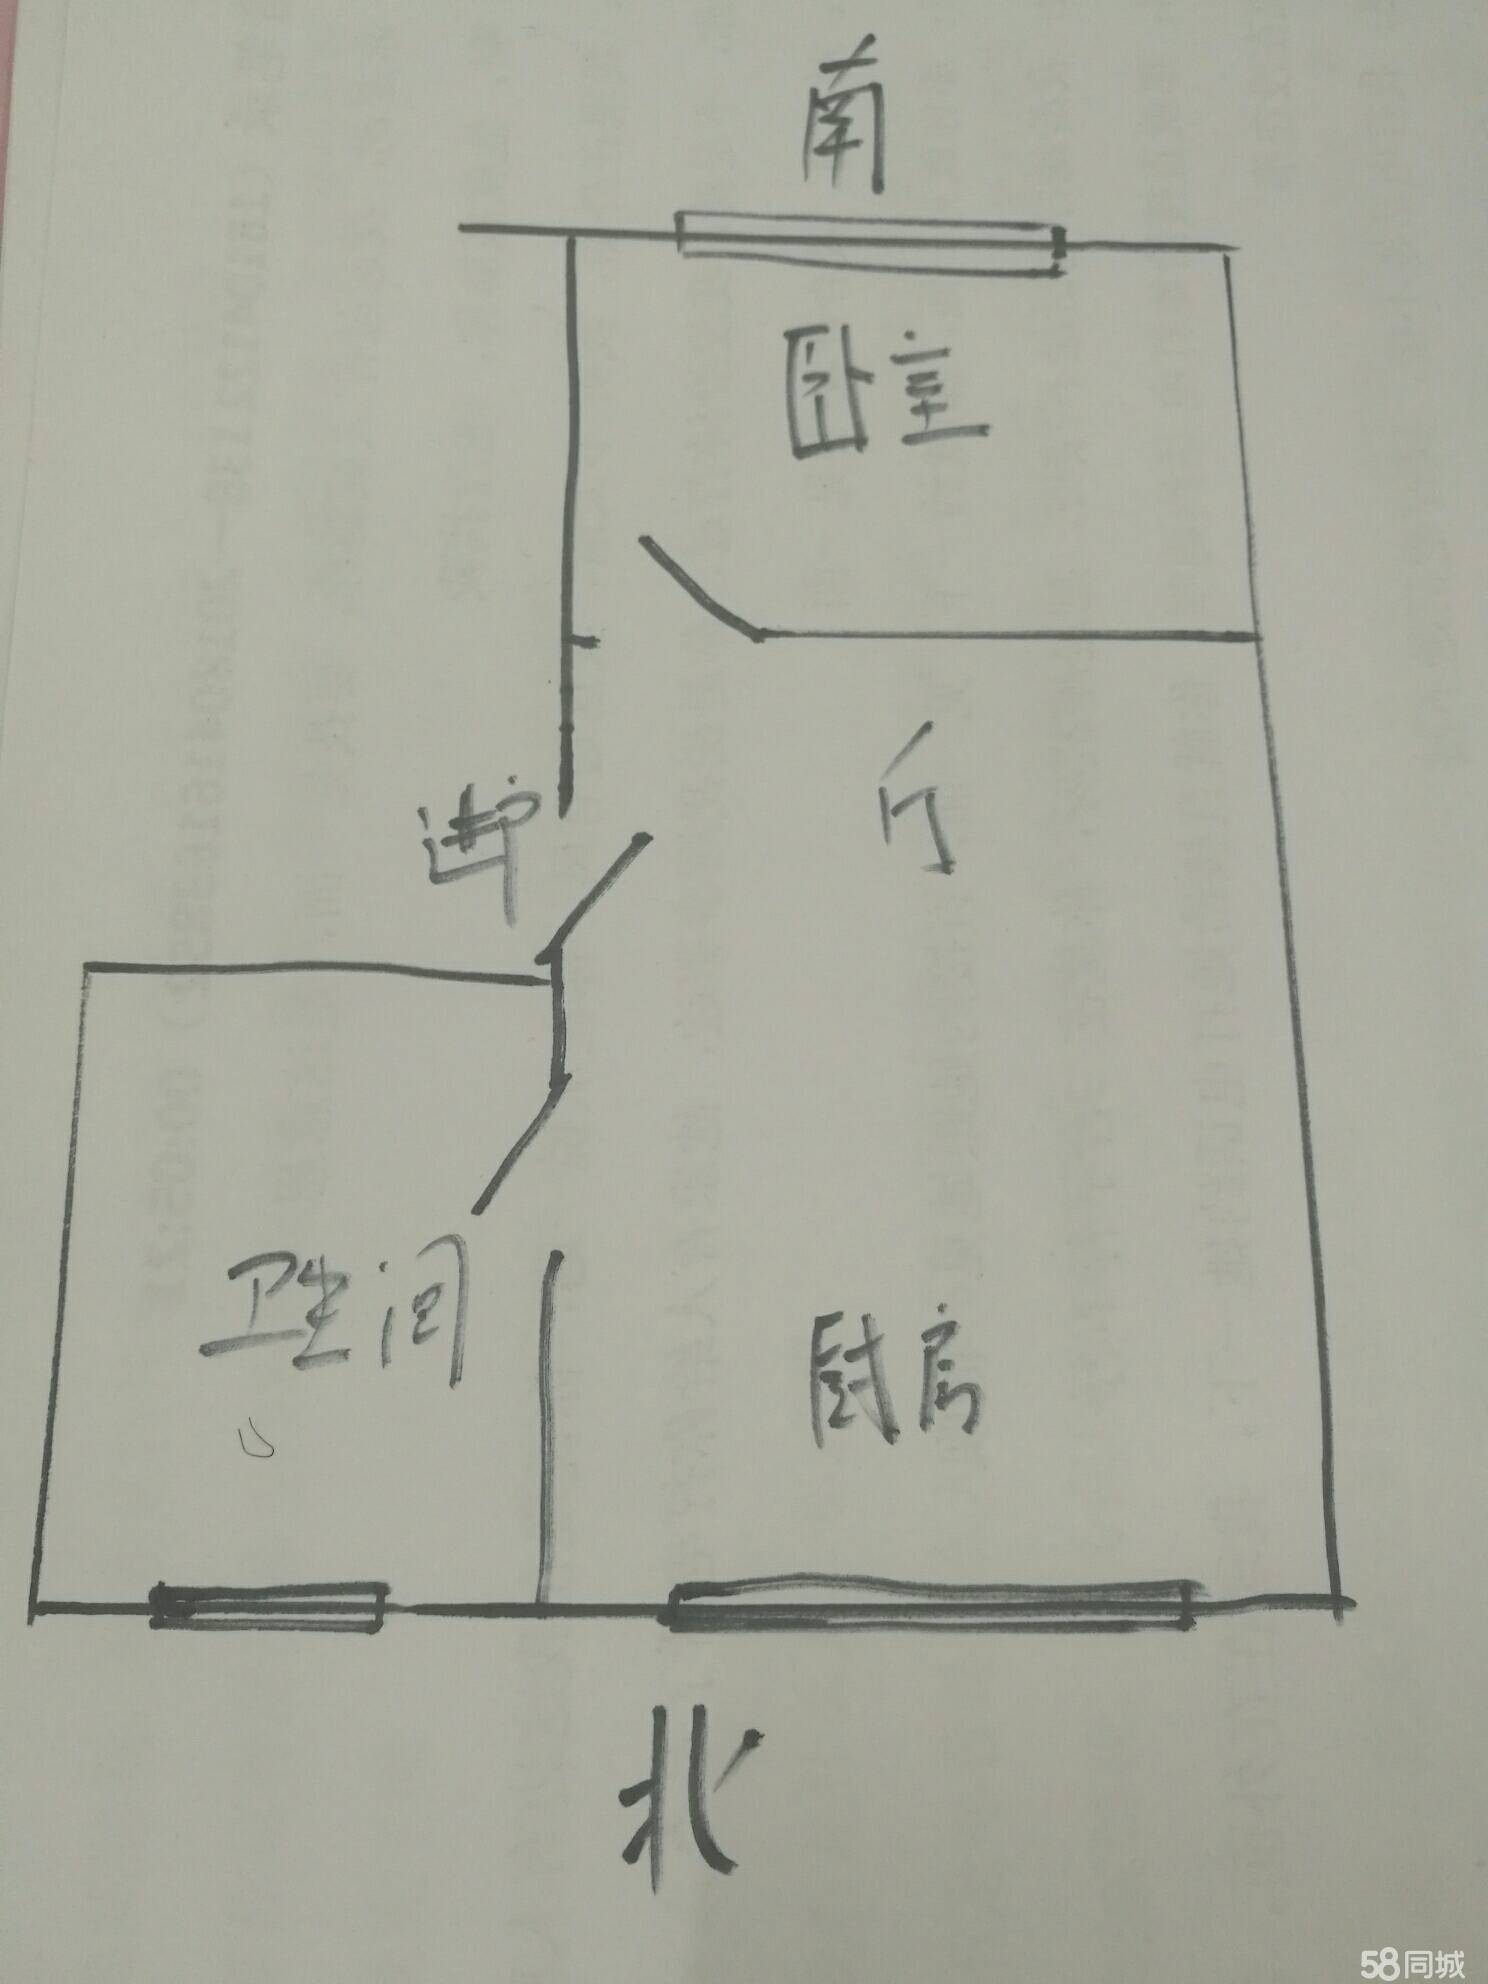 南
卧室
厅
进户
卫生间
厨房
北
58同城